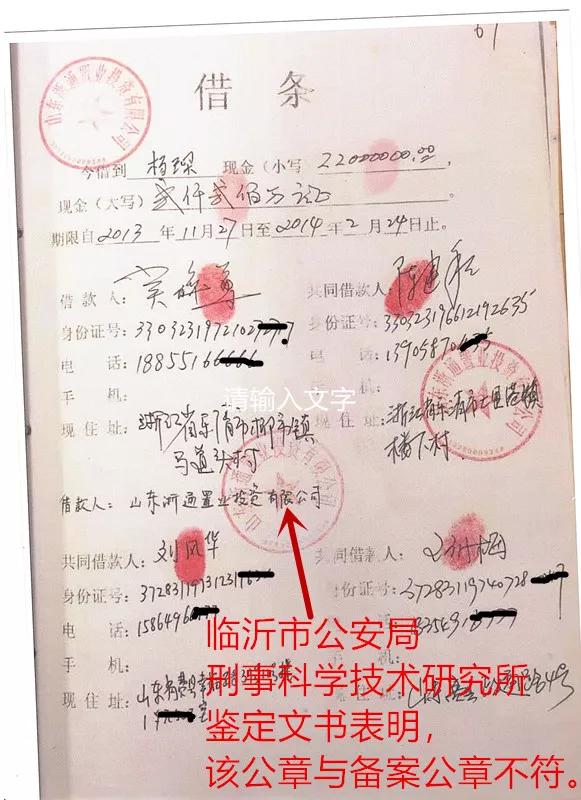 61
借 条
今借到 杨琛 现金(小写 22000000.00,
现金(大写) 贰仟贰佰万元 。
期限自2013年11月27日至2014年2月24日止。
借款人:
共同借款人: 陈建
身份证号: 330323197210
身份证号: 33032319661219
电 话: 18855166
电 话: 13905870
手 机:
机:
请输入文字
现 住 址: 浙江省乐清市柳市镇
马道头村
浙江省乐清市七里港镇
楼下村
借款人: 山东浙通置业投资有限公司
山东浙通置业投资有限公司
共同借款人: 刘风华
共同借款人:
身份证号: 3728311973123
身份证号: 37283119740728
电 话: 1586496
手 机:
现 住 址: 山东省
临沂市公安局
刑事科学技术研究所
鉴定文书表明,
该公章与备案公章不符。